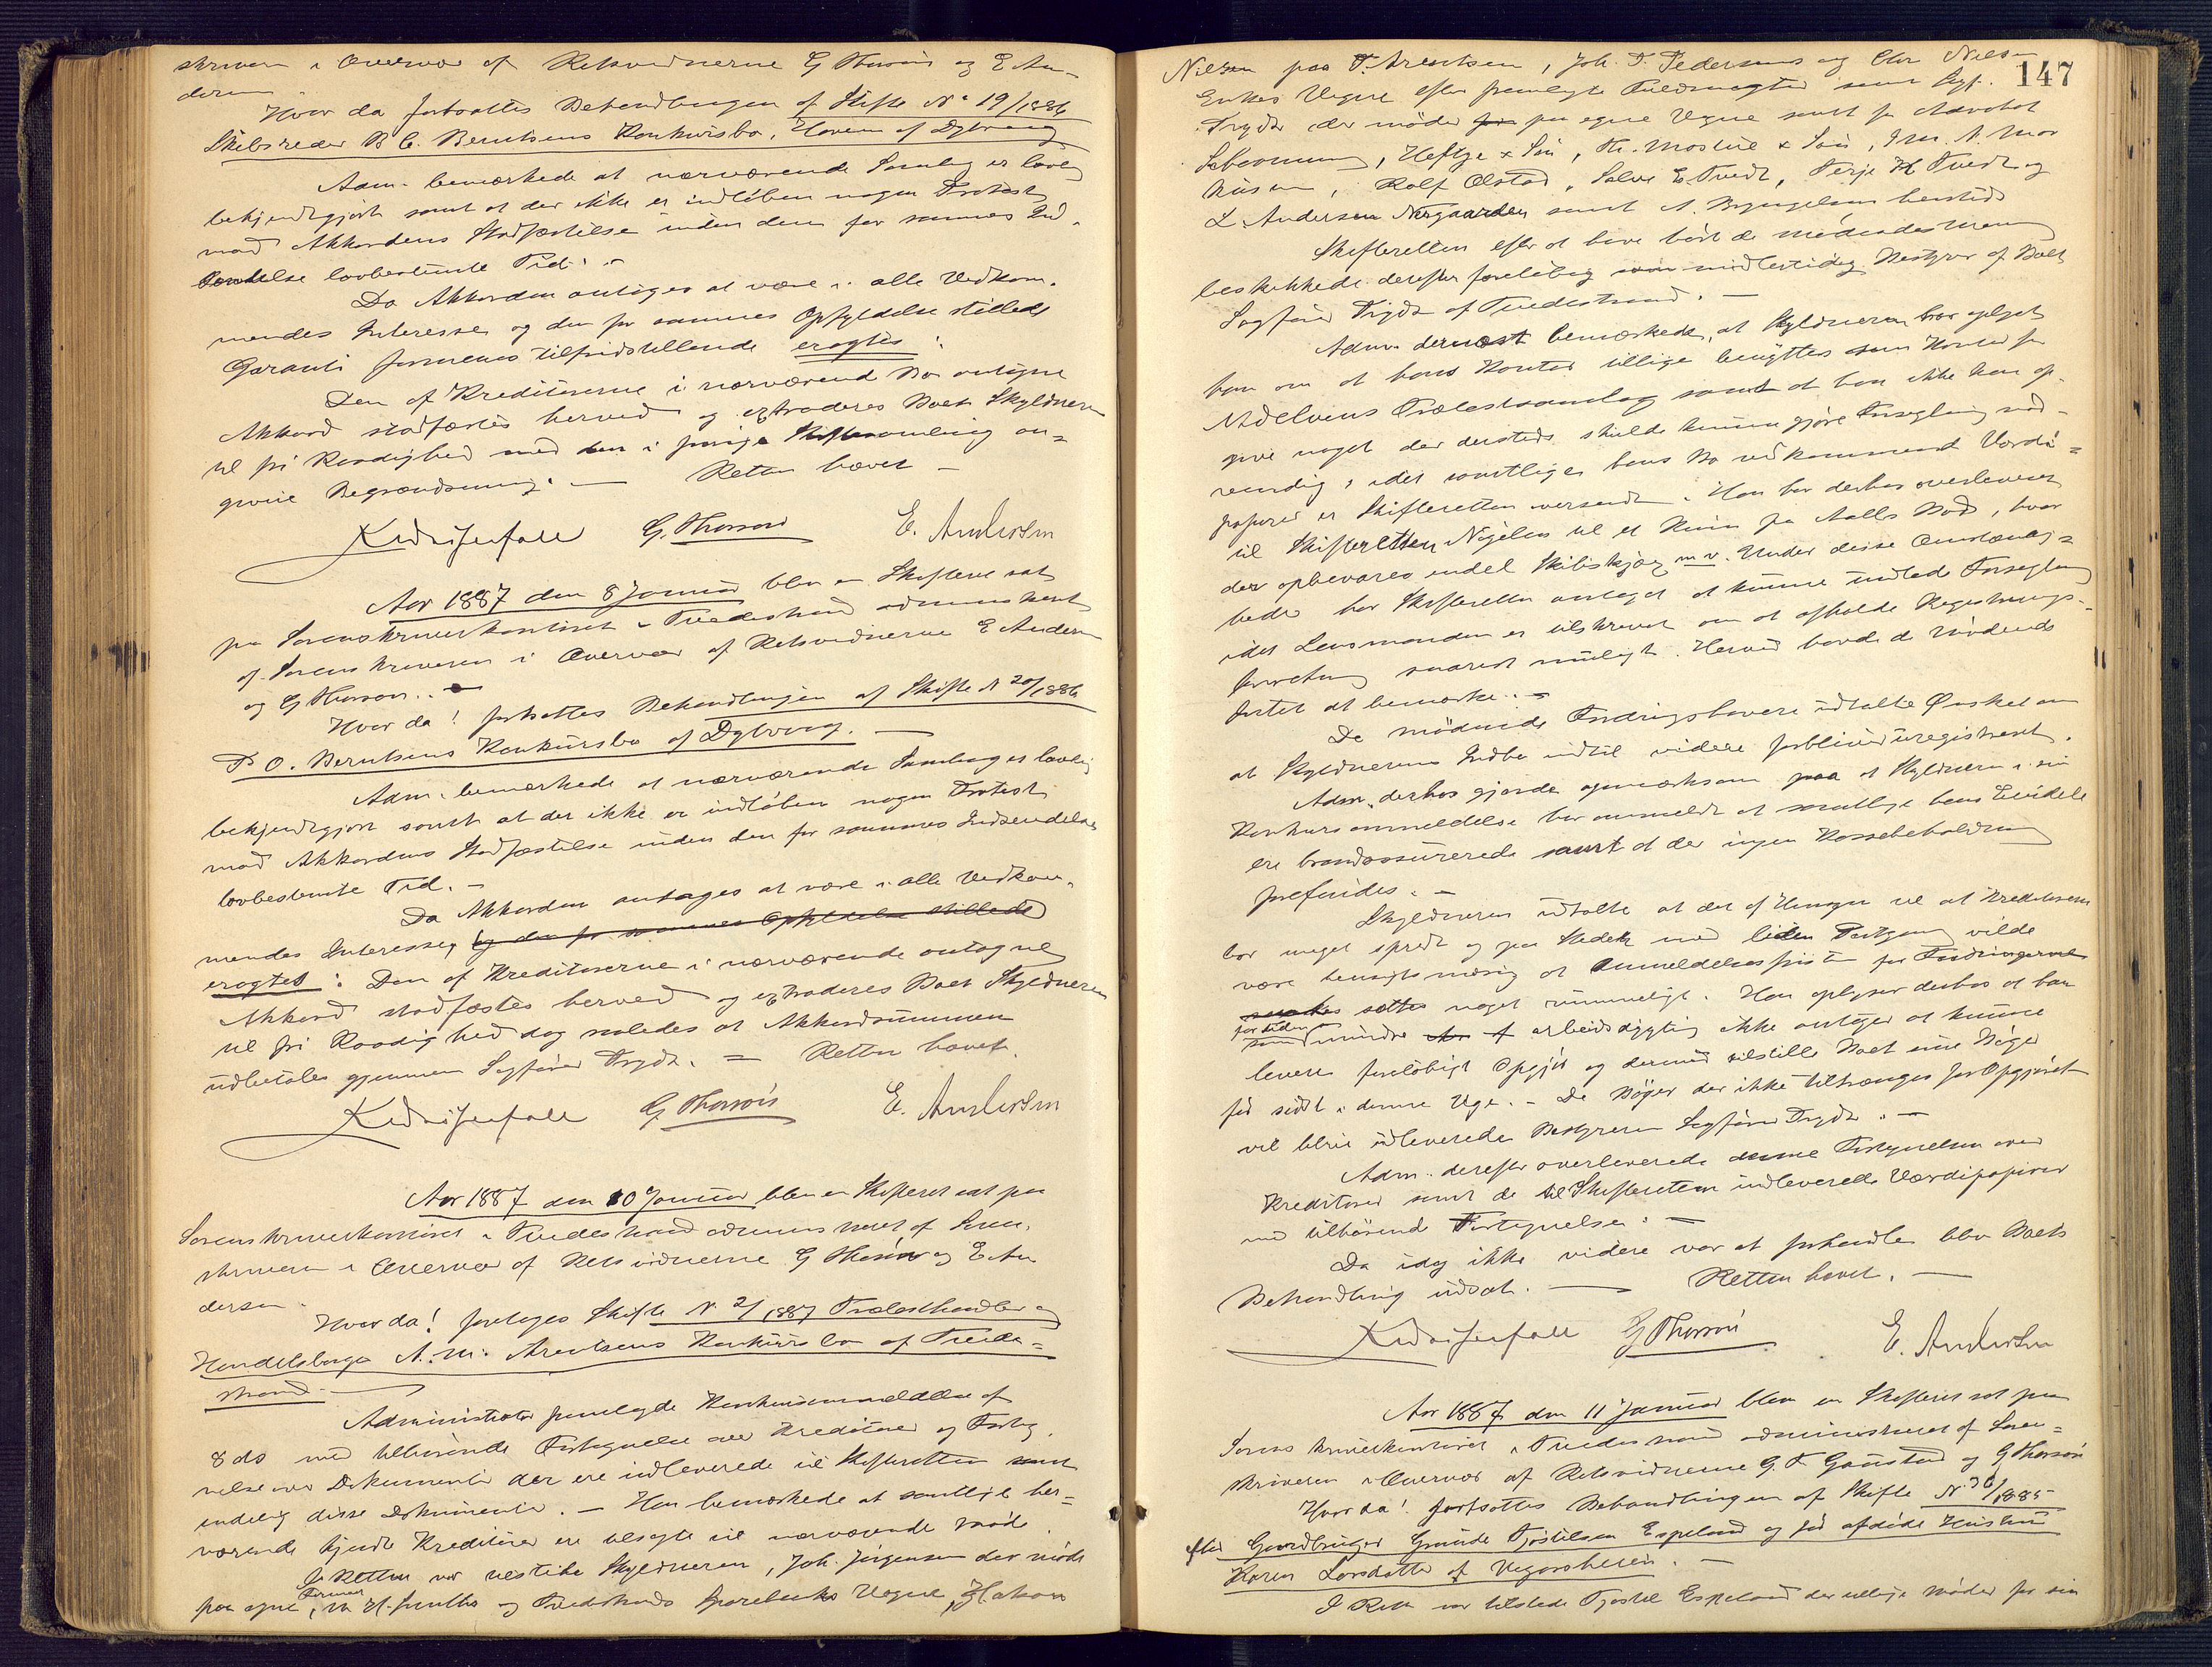 skriveren i Overvær af Retsvidnerne G Thorsøn og E An-
dersen
Hvor da fortsattes Behandlingen af Skifte No 19/1886
Skibsreder B C. Berntsens Konkursbo, Haven af Dybvaag
Adm. bemærkede at nærværende Samling er lovlig
bekjendtgjort samt at der ikke er indløben nogen Protest
mod Akkordens Stadfæstelse inden den for sammes Ind-
sendelse lovbestemte Tid. -
Da Akkorden antages at være i alle Vedkom-
mendes Interesse og den for sammes Opfyldelse stillede
Garanti formenes tilfredsstillende eragtes:
Den af Kreditorerne i nærværende Bo antagne
Akkord stadfæstes herved og extraderes Boet Skyldneren
til fri Raadighed med den i forrige Skiftesamling an-
givne Begrændsning. — Retten hævet —
G. Thorsøn E. Andersen
Aar 1887 den 8 Januar blev en Skifteret sat
paa Sorenskriverkontoret i Tvedestrand administreret
af Sorenskriveren i Overvær af Retsvidnerne E Andersen
og G Thorsøn. —
Hvor da! fortsattes Behandlingen af Skifte N 20/1886
P O. Berntsens Konkursbo af Dybvaag. —
Adm. bemærkede at nærværende Samling er lovlig
bekjendtgjort samt at der ikke er indløben nogen Protest
mod Akkordens Stadfæstelse inden den for sammes Indsendelse
lovbestemte Tid. —
Da Akkorden antages at være i alle Vedkom-
mendes Interesse, og den for sammes Opfyldelse stillede
eragtes: Den af Kreditorerne i nærværende antagne
Akkord stadfæstes herved og extraderes Boet Skyldneren
til fri Raadighed dog saaledes at Akkordsummen
udbetales gjennem Sagfører Frydt. = Retten hævet.
G Thorsøn E. Andersen
Aar 1887 den 10 Januar blev en Skifteret sat paa
Sorenskriverkontoret i Tvedestrand administreret af Soren-
skriveren i Overvær af Retsvidnerne G Thorsøn og E An
dersen
Hvor da! foretoges Skifte N. 2/1887 Trælasthandler og
Handelsborger A. M. Arentsens Konkursbo af Tvede-
strand. —
Administrator fremlagde Konkursanmeldelse af
8 ds med tilhørende Fortegnelse over Kreditorer og Forteg-
nelse over Dokumenter der ere indleverede til Skifteretten samt
endelig disse Dokumenter. — Han bemærkede at samtlige her-
værende kjendte Kreditorer ere tilsagte til nærværende Møde.
I Retten var tilstede Skyldneren, Joh. Jørgensen der møder
paa egne, Firmaet M H. Smiths og Tvedestrands Sparebanks Vegne, Hakon
147
Nielsen paa T. Arentsen, Joh. T. Pedersens og Chr Nielsen
Enkes Vegne efter fremlagte Fuldmagter samt Sagf.
Frydt der møder for paa egne Vegne samt for Advokat
Heftye & Søn, Th. Mostue & Søn,
Rolf Olstad, Salve E. Tvedt, Terje H Tvedt og
L. Andersen Nærgaarden samt A. Bryngelsen hersteds
Skifteretten efter at have hørt de Mødendes Mening
beskikkede derefter foreløbig som midlertidig Bestyrer af Boet
Sagfører Frydt af Tvedestrand. —
Adm. dernæst bemærkede, at Skyldneren har oplyst
ham om at hans Kontor tillige benyttes som Kontor for
Nidelvens Trælastsamlag samt at han ikke kan op-
give noget der dersteds skulde kunne gjøre Forsegling nød-
vendig, idet samtlige hans Bo vedkommende Værdi-
papirer er Skifteretten oversendt. Han har derhos overleveret
til Skifteretten Nøglen til et Rum paa Aalls Bod, hvor
der opbevares endel Skibskjøg m v. Under disse Omstændig-
heder har Skifteretten antaget at kunne undlade Forsegling
idet Lensmanden er tilskrevet om at afholde Registrerings-
forretning snarest muligt. Herved havde de Mødende
Intet at bemærke. —
De mødende Fordringshavere udtalte Ønsket om
at Skyldnerens Indbo indtil videre forbliver uregistreret.
Adm. derhos gjorde opmærksom paa at Skyldneren i sin
Konkursanmeldelse har anmeldt at samtlige hans Eiendele
ere brandassurerede samt at der ingen Kassebeholdning
forefindes. —
Skyldneren udtalte at det af Hensyn til at Kreditorerne
bor meget spredt og paa Steder med liden Postgang vilde
være hensigtsmæssig at Anmeldelsesfristen for Fordringerne
sættes noget rummeligt. Han oplyser derhos at han
for tiden mindre arbeidsdygtig ikke antager at kunne
levere foreløbigt Opgjør og dermed tilstille Boet sine Bøger
før sidst i denne Uge. — De Bøger der ikke tiltrænges for Opgjøret
vil blive udleverede Bestyreren Sagfører Frydt. —
Adm. derefter overleverede denne Fortegnelsen over
Kreditorer samt de til Skifteretten indleverede Værdipapirer
med tilhørende Fortegnelse. —
Da idag ikke videre var at forhandle blev Boets
Behandling udsat. — Retten hævet. —
G Thorsøn E. Andersen
Aar 1887 den 11 Januar blev en Skifteret sat paa
Sorenskriverkontoret i Tvedestrand administreret af Soren-
skriveren i Overvær af Retsvidnerne G. T. Gaustad og G Thorsøn
Hvor da! fortsattes Behandlingen af Skifte N 36/1885
efter Gaardbruger Gunde Tjøstelsen Espeland og før afdøde Hustru
Karen Larsdatter af Vegarsheien. —
I Retten var tilstede Tjøstel Espeland der tillige møder for sin